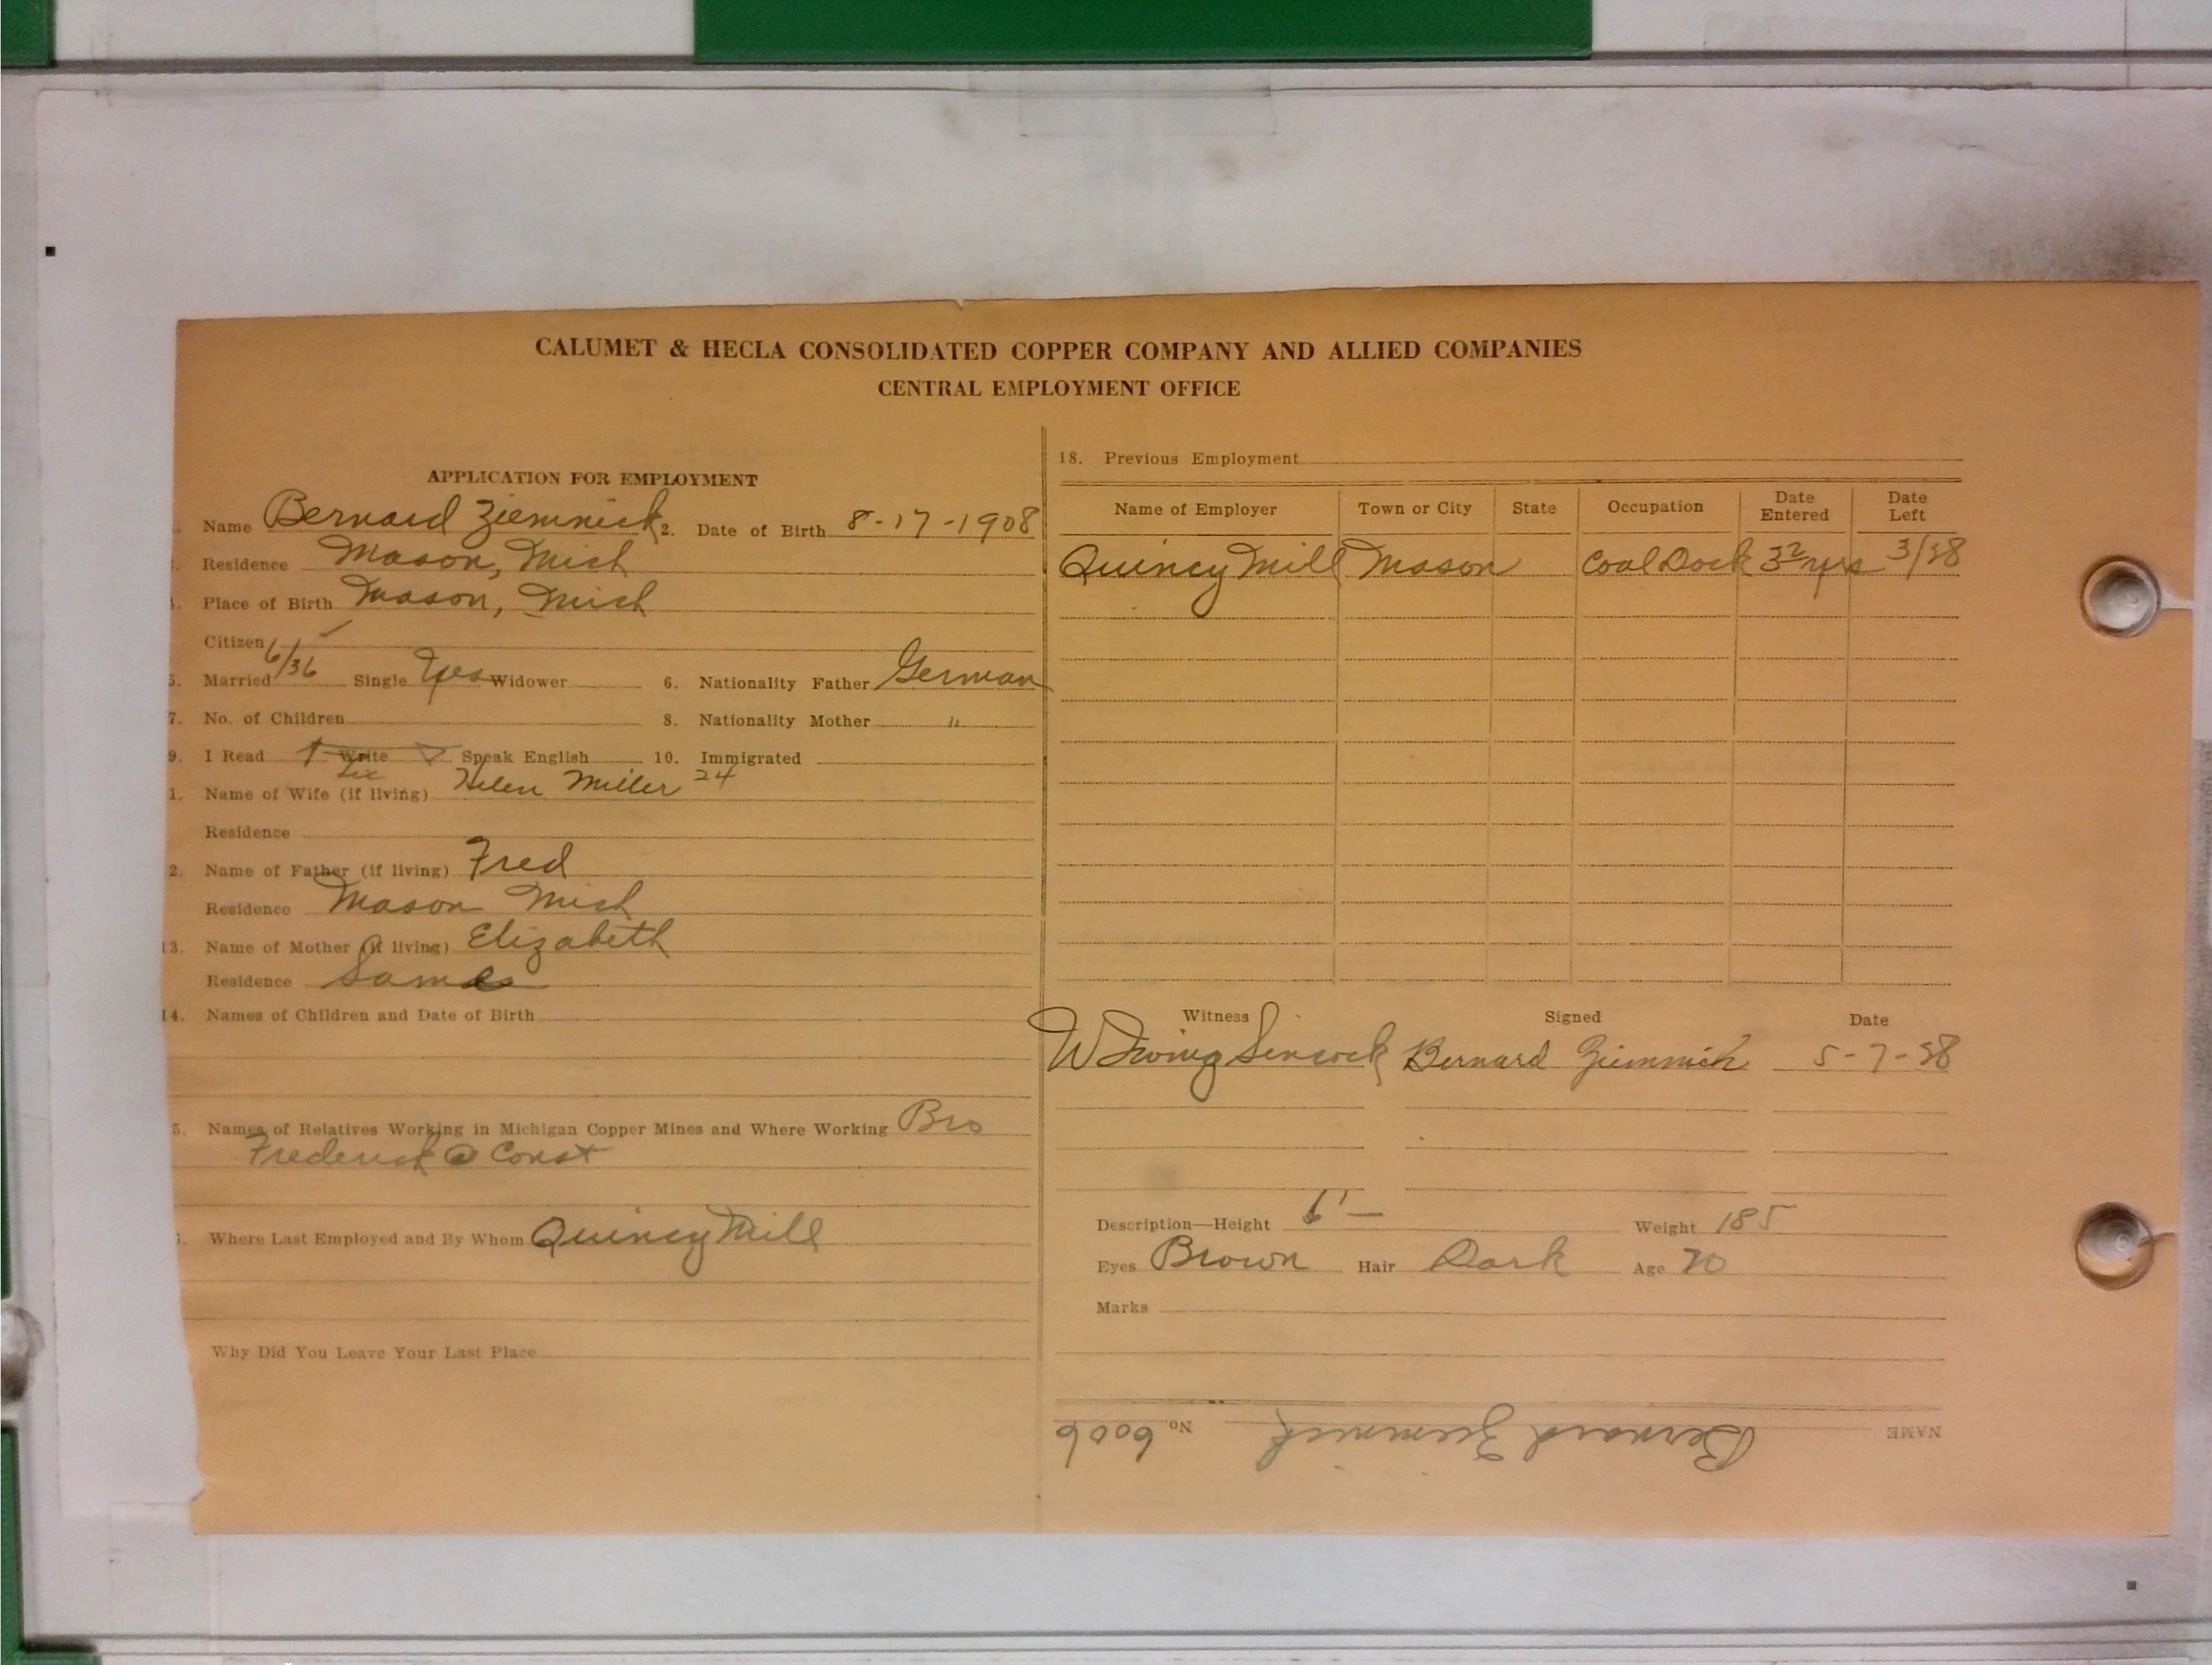 CALUMET & HECLA CONSOLIDATED COPPER COMPANY AND ALLIED COMPANIES
CENTRAL EMPLOYMENT OFFICE
APPLICATION FOR EMPLOYMENT
Name Bernard Ziemnick 2. Date of Birth 8-17-1908
Residence Mason, Mich
Place of Birth Mason, Mich
Citizen
5. Married 6/36 Single Yes Widower 6. Nationality Father German
7. No. of Children 8. Nationality Mother "
9. I Read Write Speak English 10. Immigrated
1. Name of Wife (if living) Helen Miller 24
Residence
2. Name of Father (if living) Fred
Residence Mason Mich
13. Name of Mother (if living) Elizabeth
Residence Same
14. Names of Children and Date of Birth
5. Names of Relatives Working in Michigan Copper Mines and Where Working Bro
Frederick @ Const
Where Last Employed and By Whom Quincy Mill
Why Did You Leave Your Last Place
18. Previous Employment
Name of Employer Town or City State Occupation Date Entered Date Left
Quincy Mill Mason Coal Dock yrs 3/38
Witness Signed Date
W Bernard Ziemnick 5-7-38
Description—Height 6' — Weight 185
Eyes Brown Hair Dark Age
Marks
NAME Bernard Ziemnick No. 6006